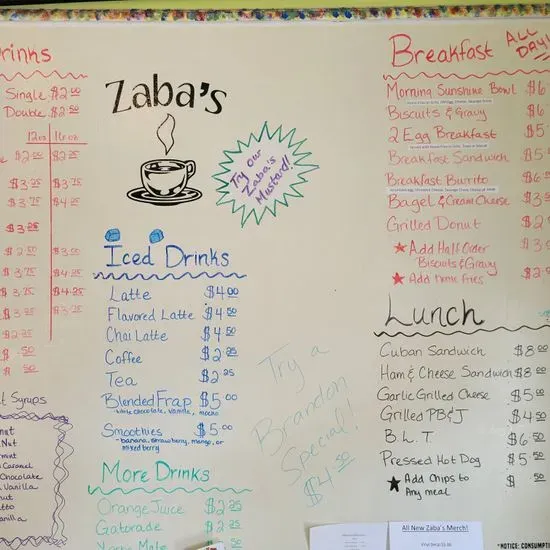 Drinks
Single $2.00
Double $2.50
12oz 16oz
$2.25 $2.75
$3.25 $3.75
$3.75 $4.25
$3.25
$2.50 $3.00
$3.75 $4.25
$3.75 $4.25
$3.25 $3.75
$2.25
$ .50
$ .50
Syrups
Nut
Caramel
Chocolate
Vanilla
Zaba's
Try our
Zaba's
Mustard!!
Iced Drinks
Latte $4.00
Flavored Latte $4.50
Chai Latte $4.50
Coffee $2.25
Tea $2.25
Blended Frap $5.00
white chocolate, vanilla, mocha
Smoothies $5.00
- banana, strawberry, mango, or
mixed berry
More Drinks
Orange Juice $2.25
Gatorade $2.25
Try a
Brandon
Special!
$4.50
Breakfast ALL
DAY!
Morning Sunshine Bowl $6
Biscuits & Gravy $6
2 Egg Breakfast $5
Breakfast Sandwich $5
Breakfast Burrito $6
Bagel & Cream Cheese $3
Grilled Donut $2
Add Half Order $3
Biscuits & Gravy
Add Home Fries $2
Lunch
Cuban Sandwich $8.00
Ham & Cheese Sandwich $8.00
Garlic Grilled Cheese $5.00
Grilled PB & J $4.50
B.L.T. $6.50
Pressed Hot Dog $5.50
Add Chips to $ .50
Any meal
All New Zaba's Merch!
*NOTICE: CONSUMPTI